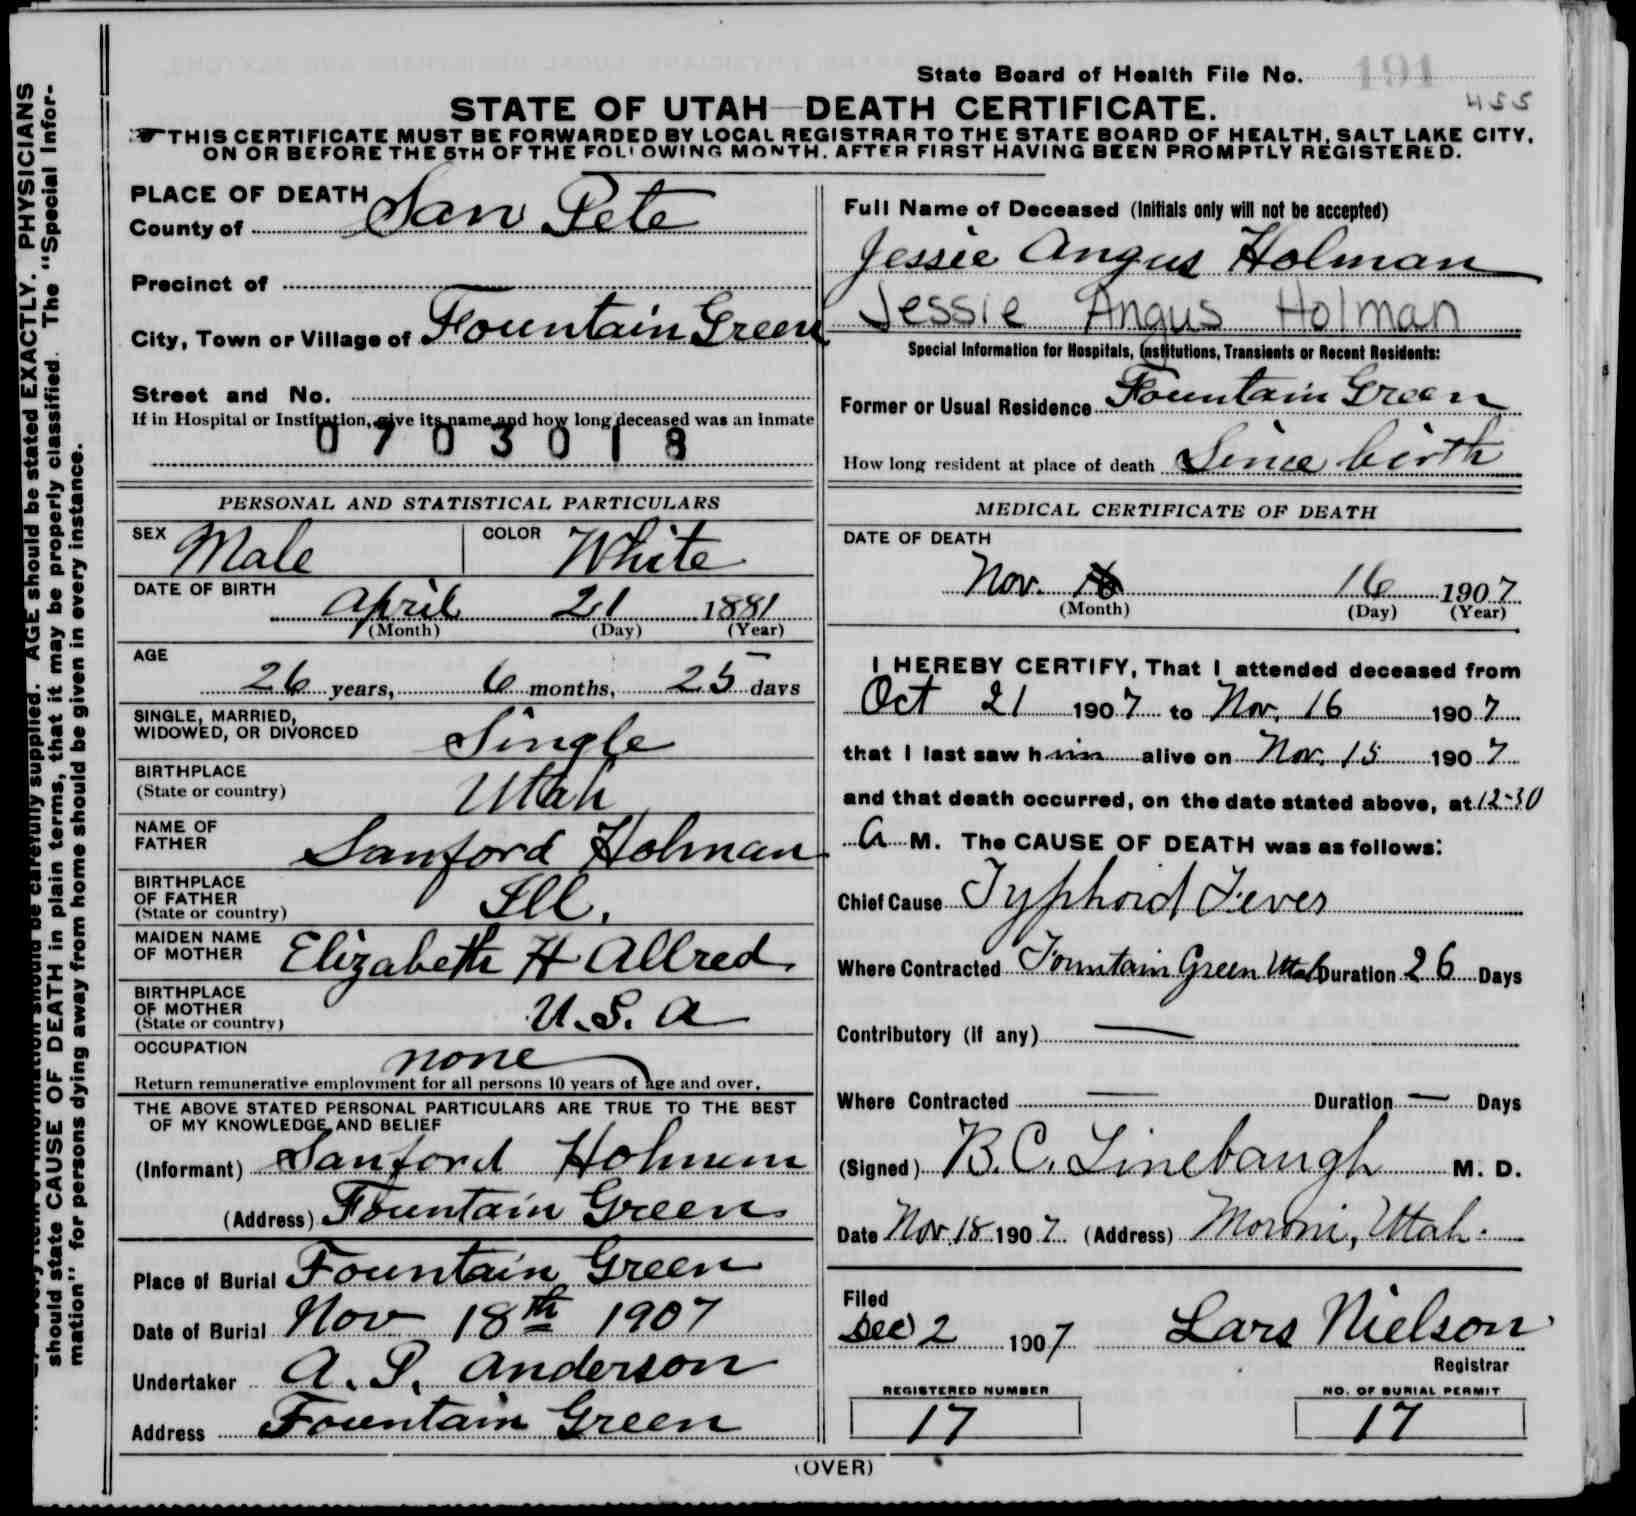 State Board of Health File No. 191
455
STATE OF UTAH—DEATH CERTIFICATE.
THIS CERTIFICATE MUST BE FORWARDED BY LOCAL REGISTRAR TO THE STATE BOARD OF HEALTH, SALT LAKE CITY,
ON OR BEFORE THE 5TH OF THE FOLLOWING MONTH, AFTER FIRST HAVING BEEN PROMPTLY REGISTERED.
PLACE OF DEATH
County of San Pete
Precinct of
City, Town or Village of Fountain Green
Street and No.
If in Hospital or Institution, give its name and how long deceased was an inmate
0703018
PERSONAL AND STATISTICAL PARTICULARS
SEX Male COLOR White
DATE OF BIRTH
April 21 1881
(Month) (Day) (Year)
AGE
26 years, 6 months, 25 days
SINGLE, MARRIED,
WIDOWED, OR DIVORCED Single
BIRTHPLACE
(State or country) Utah
NAME OF
FATHER Sanford Holman
BIRTHPLACE
OF FATHER
(State or country) Ill.
MAIDEN NAME
OF MOTHER Elizabeth H Allred
BIRTHPLACE
OF MOTHER
(State or country) U.S. A
OCCUPATION
none
Return remunerative employment for all persons 10 years of age and over.
THE ABOVE STATED PERSONAL PARTICULARS ARE TRUE TO THE BEST
OF MY KNOWLEDGE AND BELIEF
(Informant) Sanford Holman
(Address) Fountain Green
Place of Burial Fountain Green
Date of Burial Nov 18th 1907
Undertaker A. P. Anderson
Address Fountain Green
Full Name of Deceased (Initials only will not be accepted)
Jessie Angus Holman
Jessie Angus Holman
Special Information for Hospitals, Institutions, Transients or Recent Residents:
Former or Usual Residence Fountain Green
How long resident at place of death Since birth
MEDICAL CERTIFICATE OF DEATH
DATE OF DEATH
Nov. 16 1907
(Month) (Day) (Year)
I HEREBY CERTIFY, That I attended deceased from
Oct 21 1907 to Nov. 16 1907
that I last saw him alive on Nov. 15 1907
and that death occurred, on the date stated above, at 12-30
A M. The CAUSE OF DEATH was as follows:
Chief Cause Typhoid Fever
Where Contracted Fountain Green Utah Duration 26 Days
Contributory (if any) —
Where Contracted — Duration — Days
(Signed) B. C. Linebaugh M. D.
Date Nov. 18 1907 (Address) Moroni, Utah.
Filed
Dec 2 1907 Lars Nielson
Registrar
REGISTERED NUMBER
17
NO. OF BURIAL PERMIT
17
(OVER)
should be carefully supplied. AGE should be stated EXACTLY. PHYSICIANS
should state CAUSE OF DEATH in plain terms, that it may be properly classified. The "Special Infor-
mation" for persons dying away from home should be given in every instance.